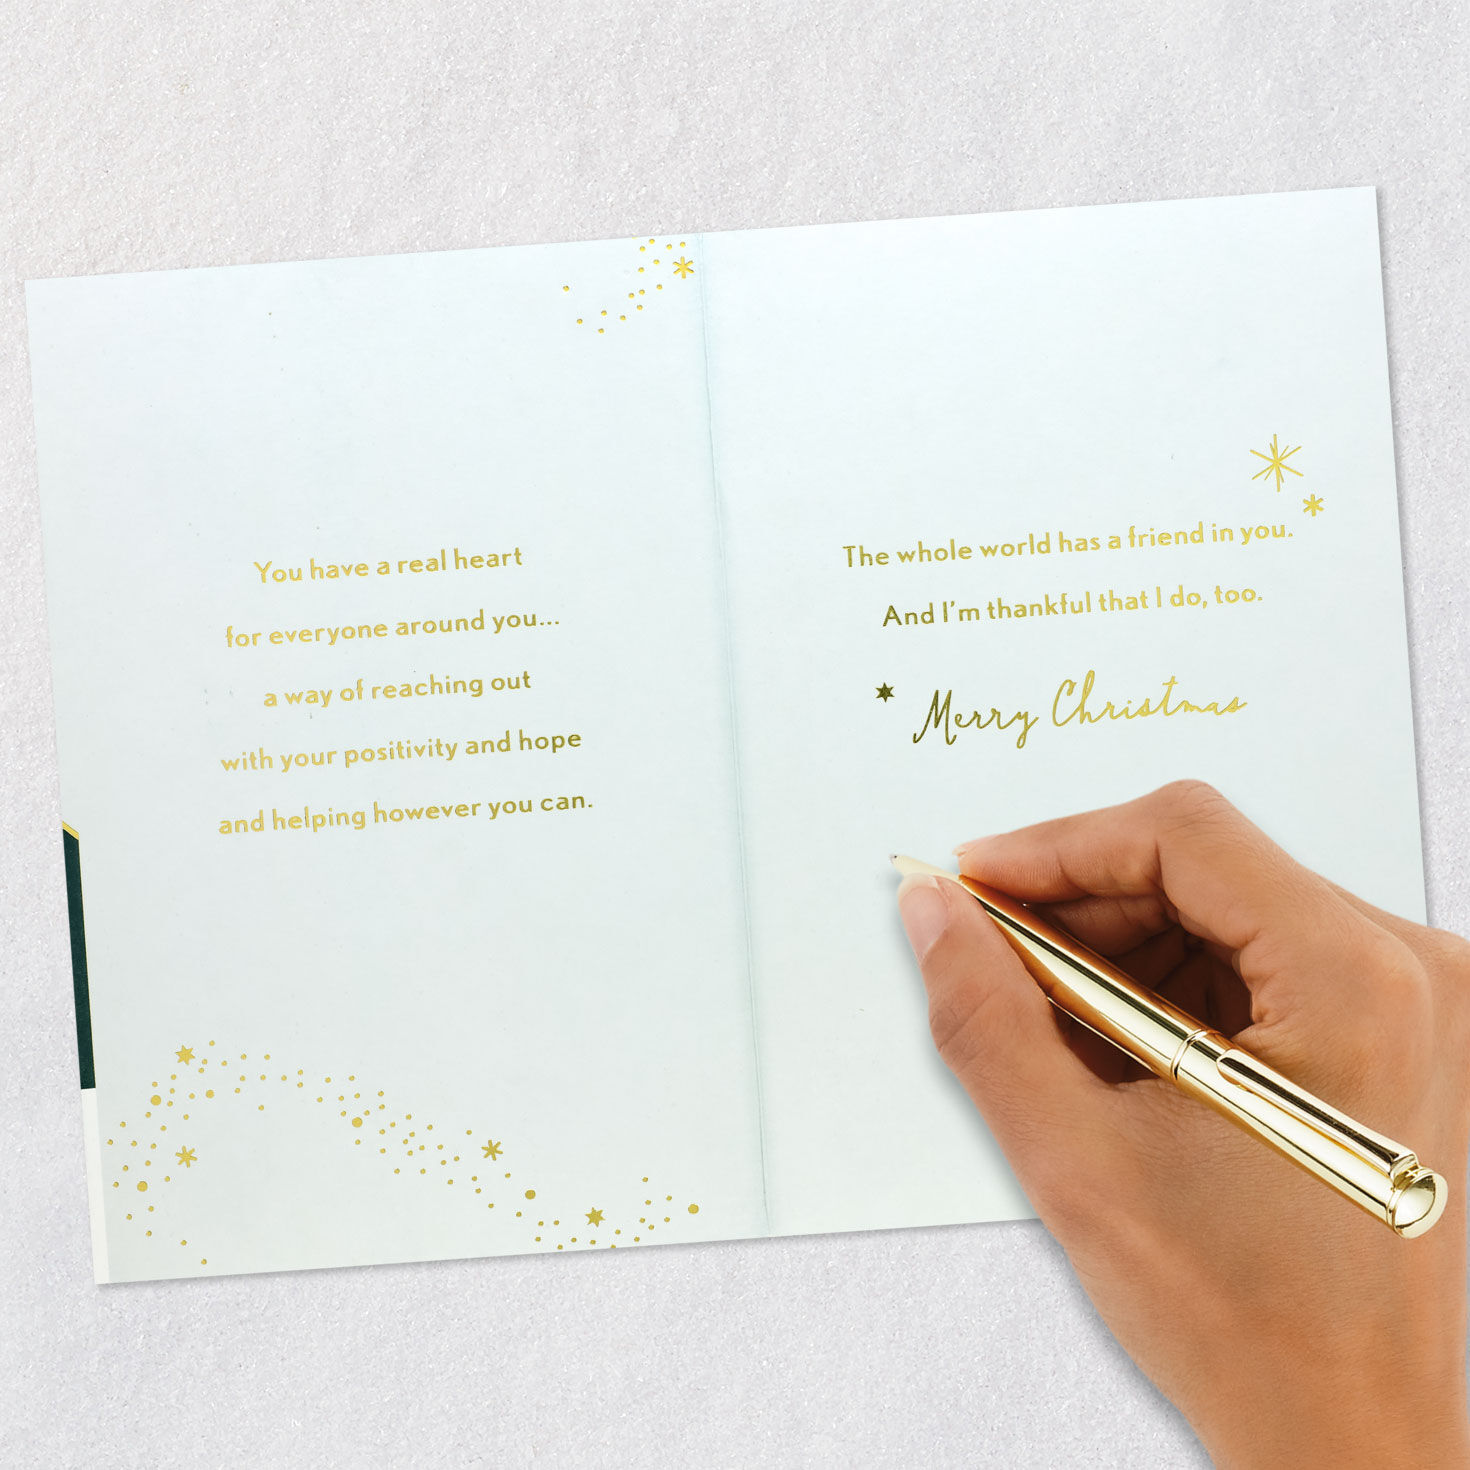 You have a real heart
for everyone around you...
a way of reaching out
with your positivity and hope
and helping however you can.
The whole world has a friend in you.
And I'm thankful that I do, too.
Merry Christmas